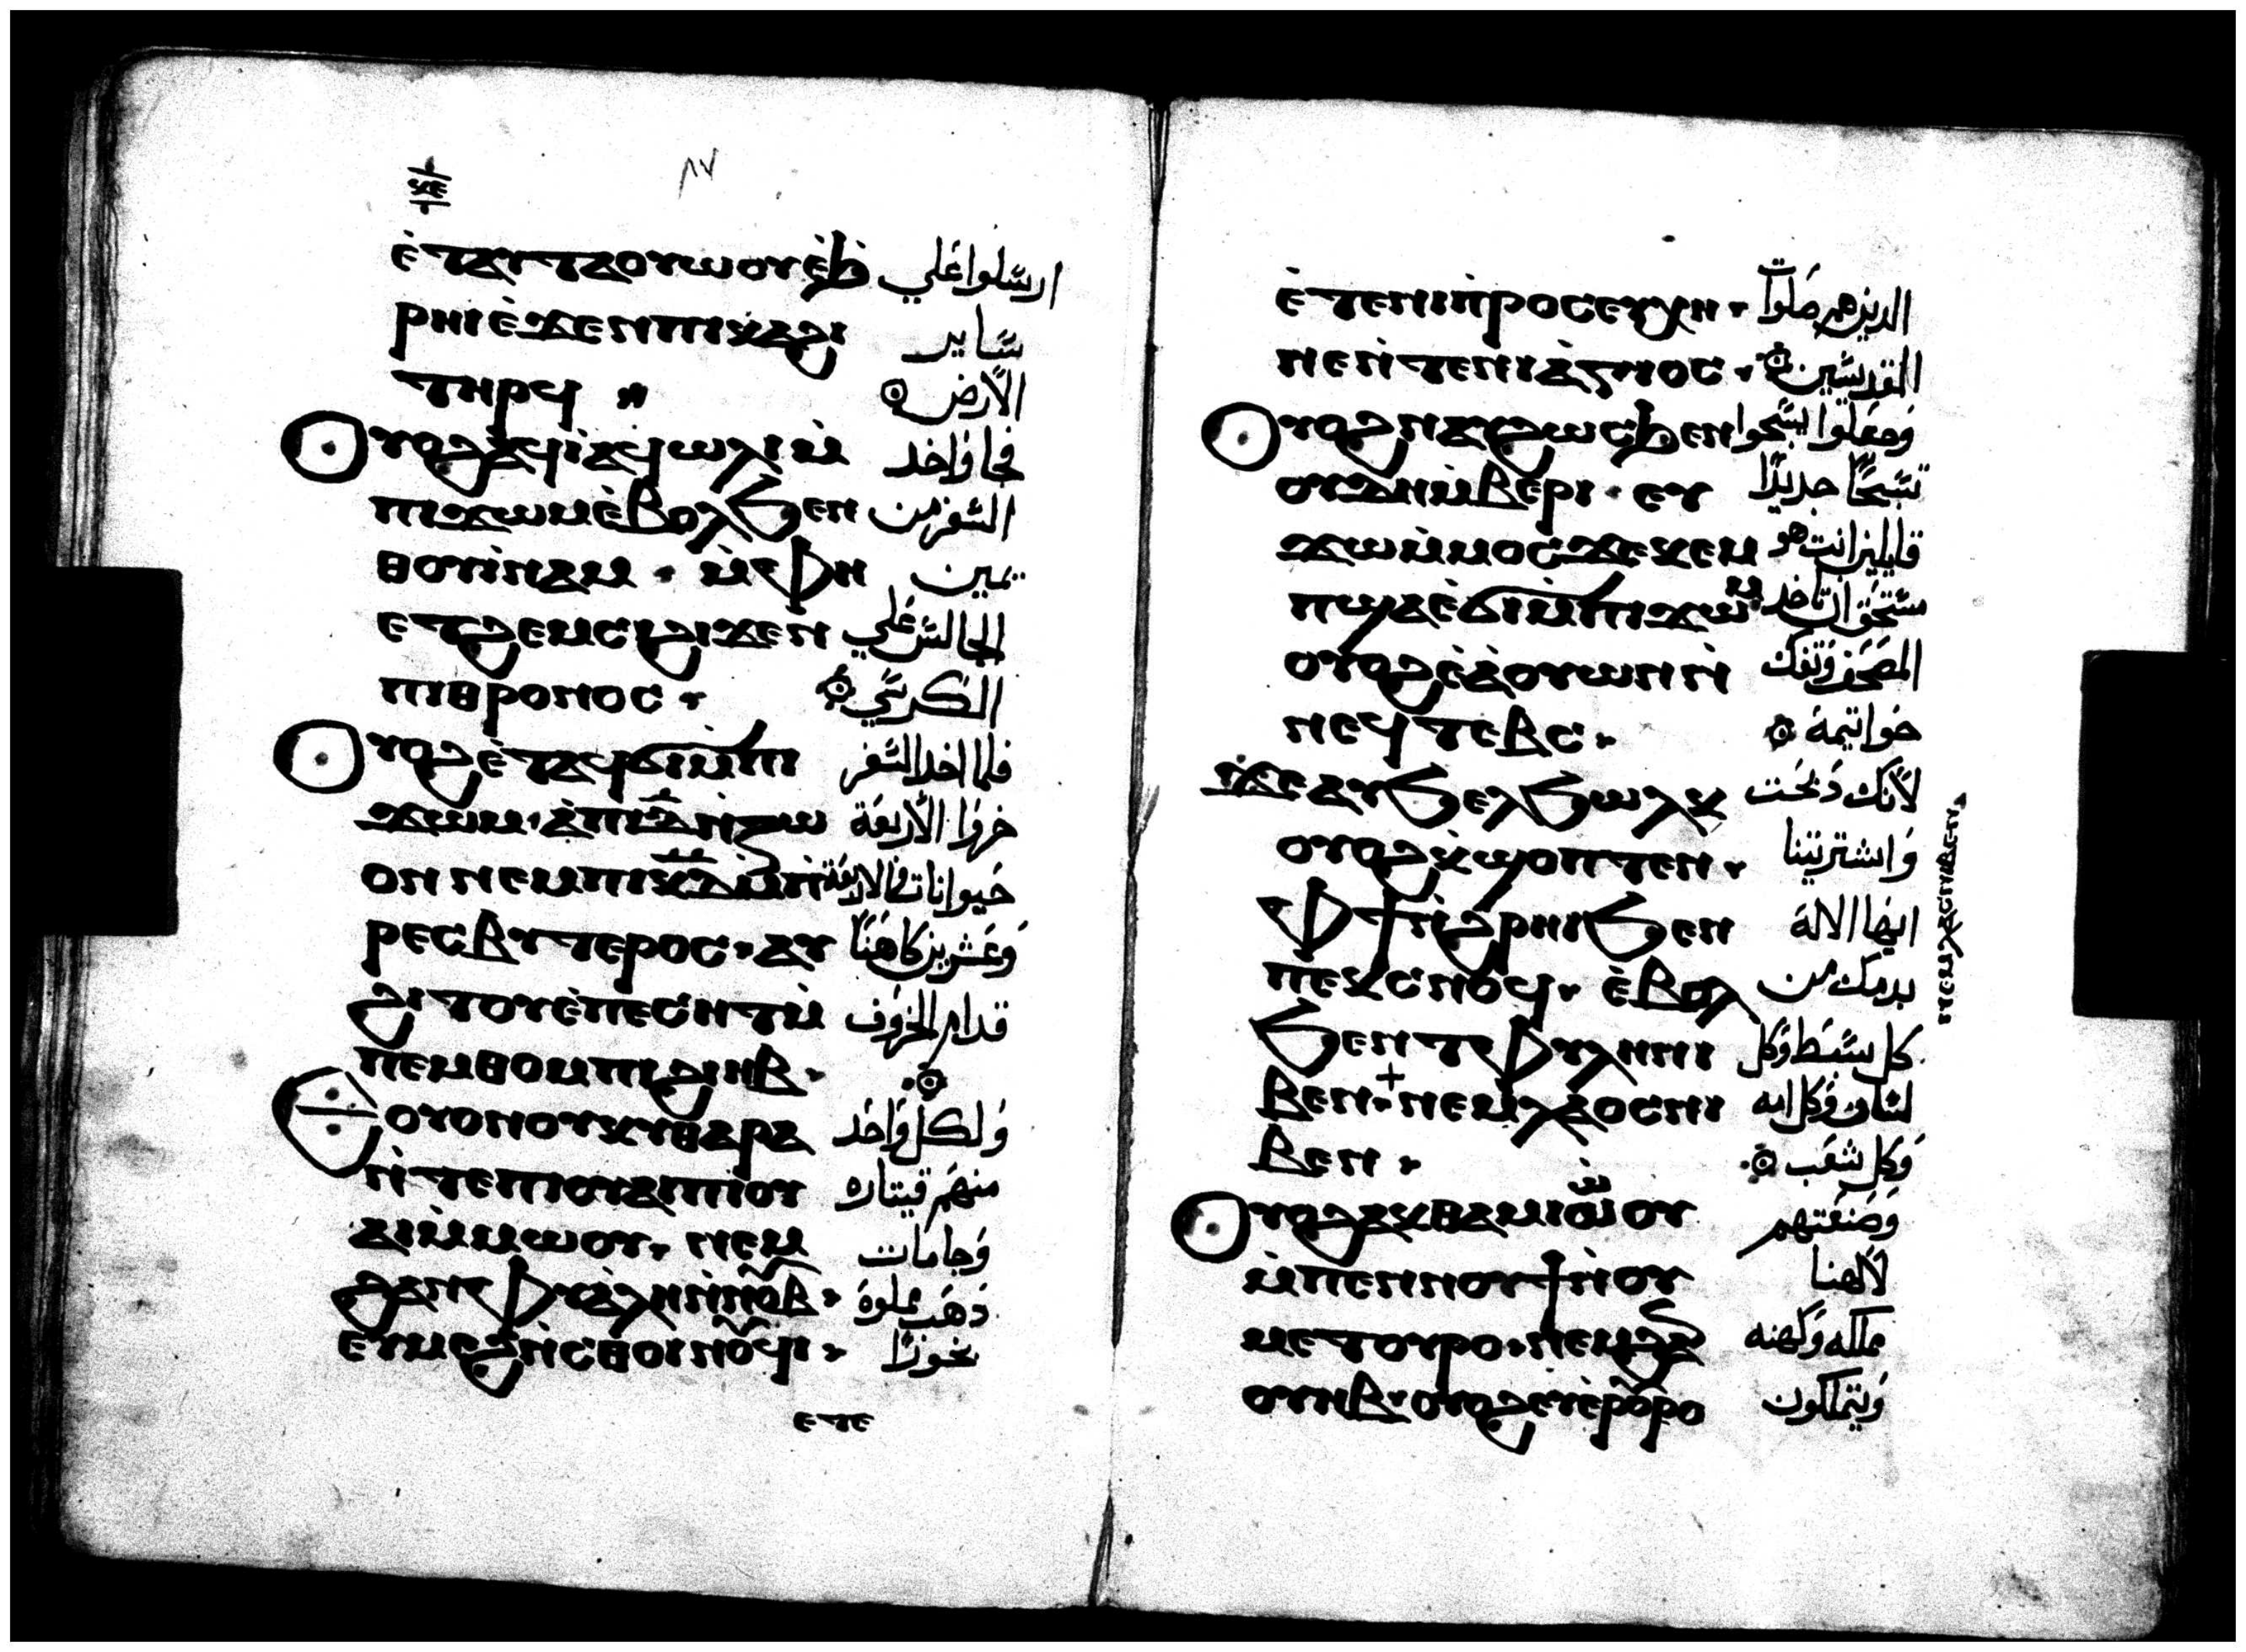 ⲝⲉ
٨٧
ⲉ̀ⲧⲁⲩⲧⲁⲟⲩⲱⲟⲩⲉ̀ϧ̀ ارسلوا علي
ⲣⲏⲓⲉ̀ϫⲉⲛⲡⲓⲕⲁϩⲓ ساير
ⲧⲏⲣϥ الارض
ⲟⲩⲟϩⲁϥⲓ̀ⲁϥ̀ⲱⲗⲓⲙ̀ فجا واخد
ⲡⲓϫⲱⲙⲉ̀ⲃⲟⲗϧⲉⲛ السفر من
ⲑⲟⲩⲓ̀ⲛⲁⲙ · ⲙ̀ⲫⲏ يمين
ⲉⲧϩⲉⲙⲥⲓϩⲓϫⲉⲛ الجالس علي
ⲡⲓⲑⲣⲟⲛⲟⲥ · الكرسي
ⲟⲩⲟϩⲉ̀ⲧⲁϥϭⲓⲙ̀ⲡⲓ فلما اخد السفر
ϫⲱⲙ · ⲁ̀ⲡⲓⲇ̅ⲛ̀ⲍⲱ خروا الاربعة
ⲟⲛ ⲛⲉⲙⲡⲓⲕ̅ⲇ̅ⲙ̀ⲡ̀ حيوانات والاربعة
ⲣⲉⲥⲃⲩⲧⲉⲣⲟⲥ · ⲁⲩ وعشرين كاهنا
ϩⲓⲧⲟⲩⲉ̀ⲡⲉⲥⲏⲧⲙ̀ قدام الخروف
ⲡⲉⲙⲑⲟⲙⲡⲓϩⲓⲏⲃ ·
ⲟⲩⲟⲛⲟⲩⲕⲩⲑⲁⲣⲁ ولكل واحد
ⲛ̀ⲧⲉⲡⲓⲟⲩⲁⲓⲡⲓⲟⲩ منهم قيتاره
ⲁⲓⲙ̀ⲙⲱⲟⲩ · ⲛⲉⲙ وجامات
ϩⲁⲛⲫⲩⲁ̀ⲗⲏⲛ̀ⲛⲟⲩⲃ · ذهب مملوة
ⲉⲩⲙⲉϩⲛ̀ⲥⲑⲟⲓⲛⲟⲩϥⲓ · بخورا
ⲉⲧⲉ
ⲉ̀ⲧⲉⲛⲓⲡ̀ⲣⲟⲥⲉⲩⲭⲏ · الدين هم صلوات
ⲛⲉⲛ̀ⲧⲉⲛⲓⲁ̀ⲅⲓⲟⲥ · القديسين
ⲟⲩⲟϩⲛⲁⲩϩⲱⲥϧⲉⲛ وجعلوا يسبحوا
ⲟⲩϫⲏⲙ̀ⲃⲉⲣⲓ · ⲉⲩ تسبحًا جديدًا
ϫⲱⲙ̀ⲙⲟⲥϫⲉⲕⲉⲙ قايلين انت هو
ⲡϣⲁⲉ̀ϭⲓⲙ̀ⲡⲓϫⲱⲙ مستحق ان تاخد
ⲟⲩⲟϩⲉ̀ⲁ̀ⲟⲩⲱⲛⲛ̀ المصحف وتفك
ⲛⲉϥⲧⲉⲃⲥ · خواتيمة
ϫⲉⲁⲩϧⲉⲗϧⲱⲗⲕ لانك دبحت
ⲟⲩⲟϩⲕ̀ϣⲟⲡⲧⲉⲛ · واشتريتنا
ⲫϯⲛ̀ϩⲣⲏⲓϧⲉⲛ ايها الاله
ⲡⲉⲕⲥⲛⲟϥ · ⲉ̀ⲃⲟⲗ بدمك من
ϧⲉⲛⲧⲉⲫⲩⲗⲏⲛⲓ كل سبط وكل
ⲃⲉⲛ · ⲛⲉⲙⲗⲁⲟⲥⲛⲓ لسان وكل امه
ⲃⲉⲛ · وكل شعب
ⲟⲩⲟϩⲁⲕⲑⲁⲙⲓⲱⲟⲩ وصنعتهم
ⲙ̀ⲡⲉⲛⲛⲟⲩϯⲛ̀ⲟⲩ لالهنا
ⲙⲉⲧⲟⲩⲣⲟ · ⲛⲉⲙϩⲁ مملكه وكهنه
ⲟⲩⲏⲃ · ⲟⲩⲟϩⲉⲩⲉ̀ⲣⲟⲩⲣⲟ ويتملكون